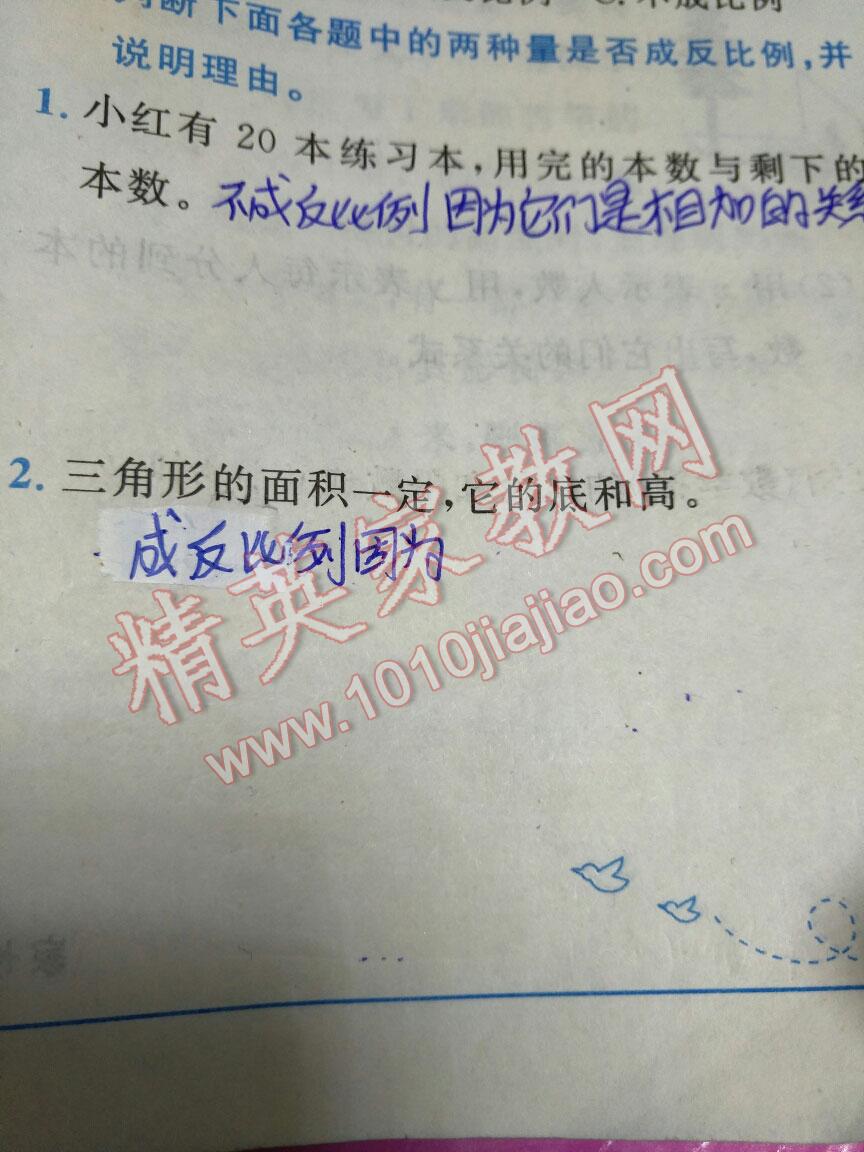 比例 C. 不成比例
判断下面各题中的两种量是否成反比例,并
说明理由。
1. 小红有 20 本练习本,用完的本数与剩下的
本数。不成反比例因为它们是相加的关系
2. 三角形的面积一定,它的底和高。
成反比例因为
精英家教网
www.1010jiajiao.com